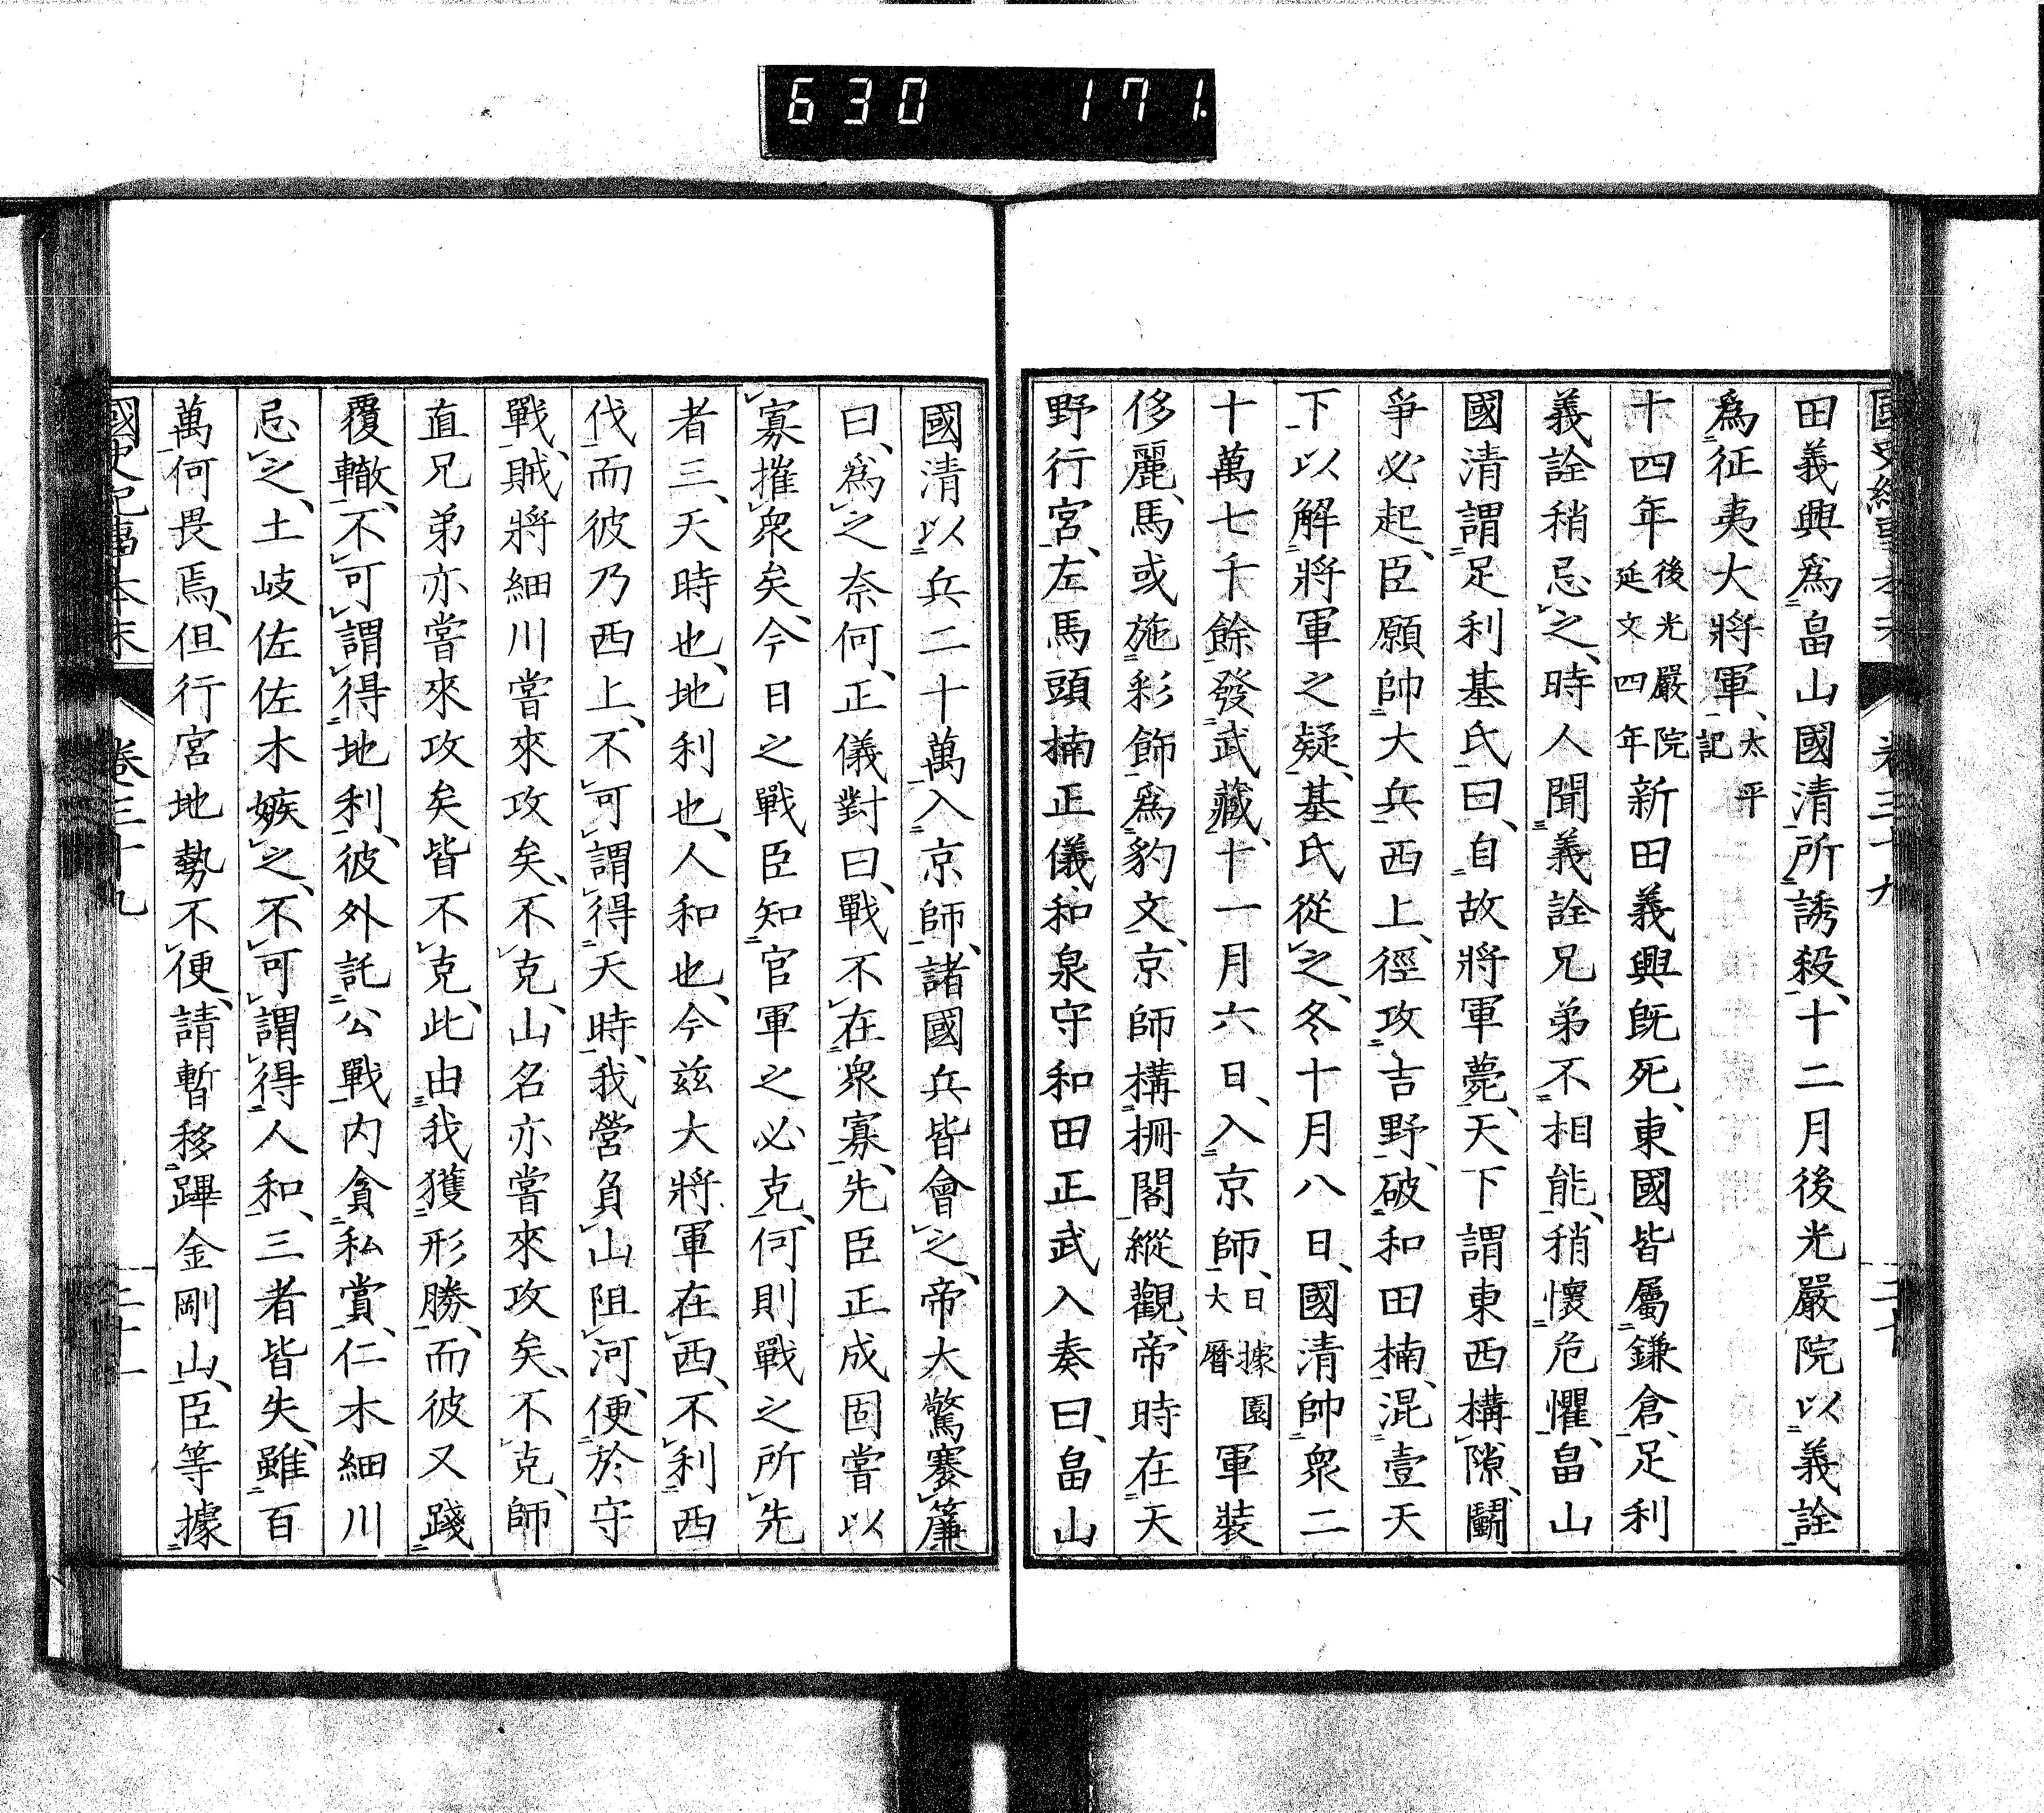 630 171.
國史紀事本末 卷三十九
田義興爲畠山國清所誘殺、十二月後光嚴院以義詮
爲征夷大將軍、太平記
十四年後光嚴院延文四年新田義興既死、東國皆屬鎌倉、足利
義詮稍忌之、時人聞義詮兄弟不相能、稍懷危懼、畠山
國清謂足利基氏曰、自故將軍薨、天下謂東西構隙、鬭
爭必起、臣願帥大兵西上、徑攻吉野、破和田楠、混壹天
下以解將軍之疑、基氏從之、冬十月八日、國清帥衆二
十萬七千餘發武藏、十一月六日、入京師、日據園大曆軍裝
侈麗、馬或施彩飾爲豹文、京師構柵閣縱觀、帝時在天
野行宮、左馬頭楠正儀、和泉守和田正武入奏曰、畠山
國清以兵二十萬入京師、諸國兵皆會之、帝大驚、褰簾
曰、爲之奈何、正儀對曰、戰不在衆寡、先臣正成固嘗以
寡摧衆矣、今日之戰臣知官軍之必克、何則戰之所先
者三、天時也、地利也、人和也、今茲大將軍在西、不利西
伐而彼乃西上、不可謂得天時、我營負山阻河、便於守
戰、賊將細川嘗來攻矣、不克、山名亦嘗來攻矣、不克、師
直兄弟亦嘗來攻矣皆不克、此由我獲形勝、而彼又踐
覆轍、不可謂得地利、彼外託公戰內貪私賞、仁木細川
忌之、土岐佐佐木嫉之、不可謂得人和、三者皆失、雖百
萬何畏焉、但行宮地勢不便、請暫移蹕金剛山、臣等據
國史紀事本末 卷三十九 二十一